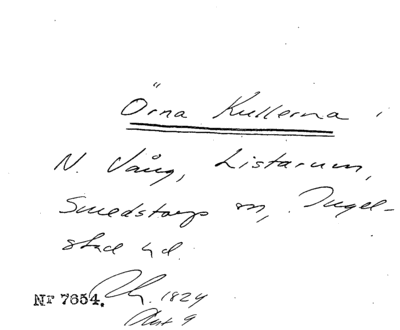 Örna Kullerna
N. Vång, Listarum,
Smedstorps sn, Ingel-
stad hd.
Nr 7654. 1824
Akt 9